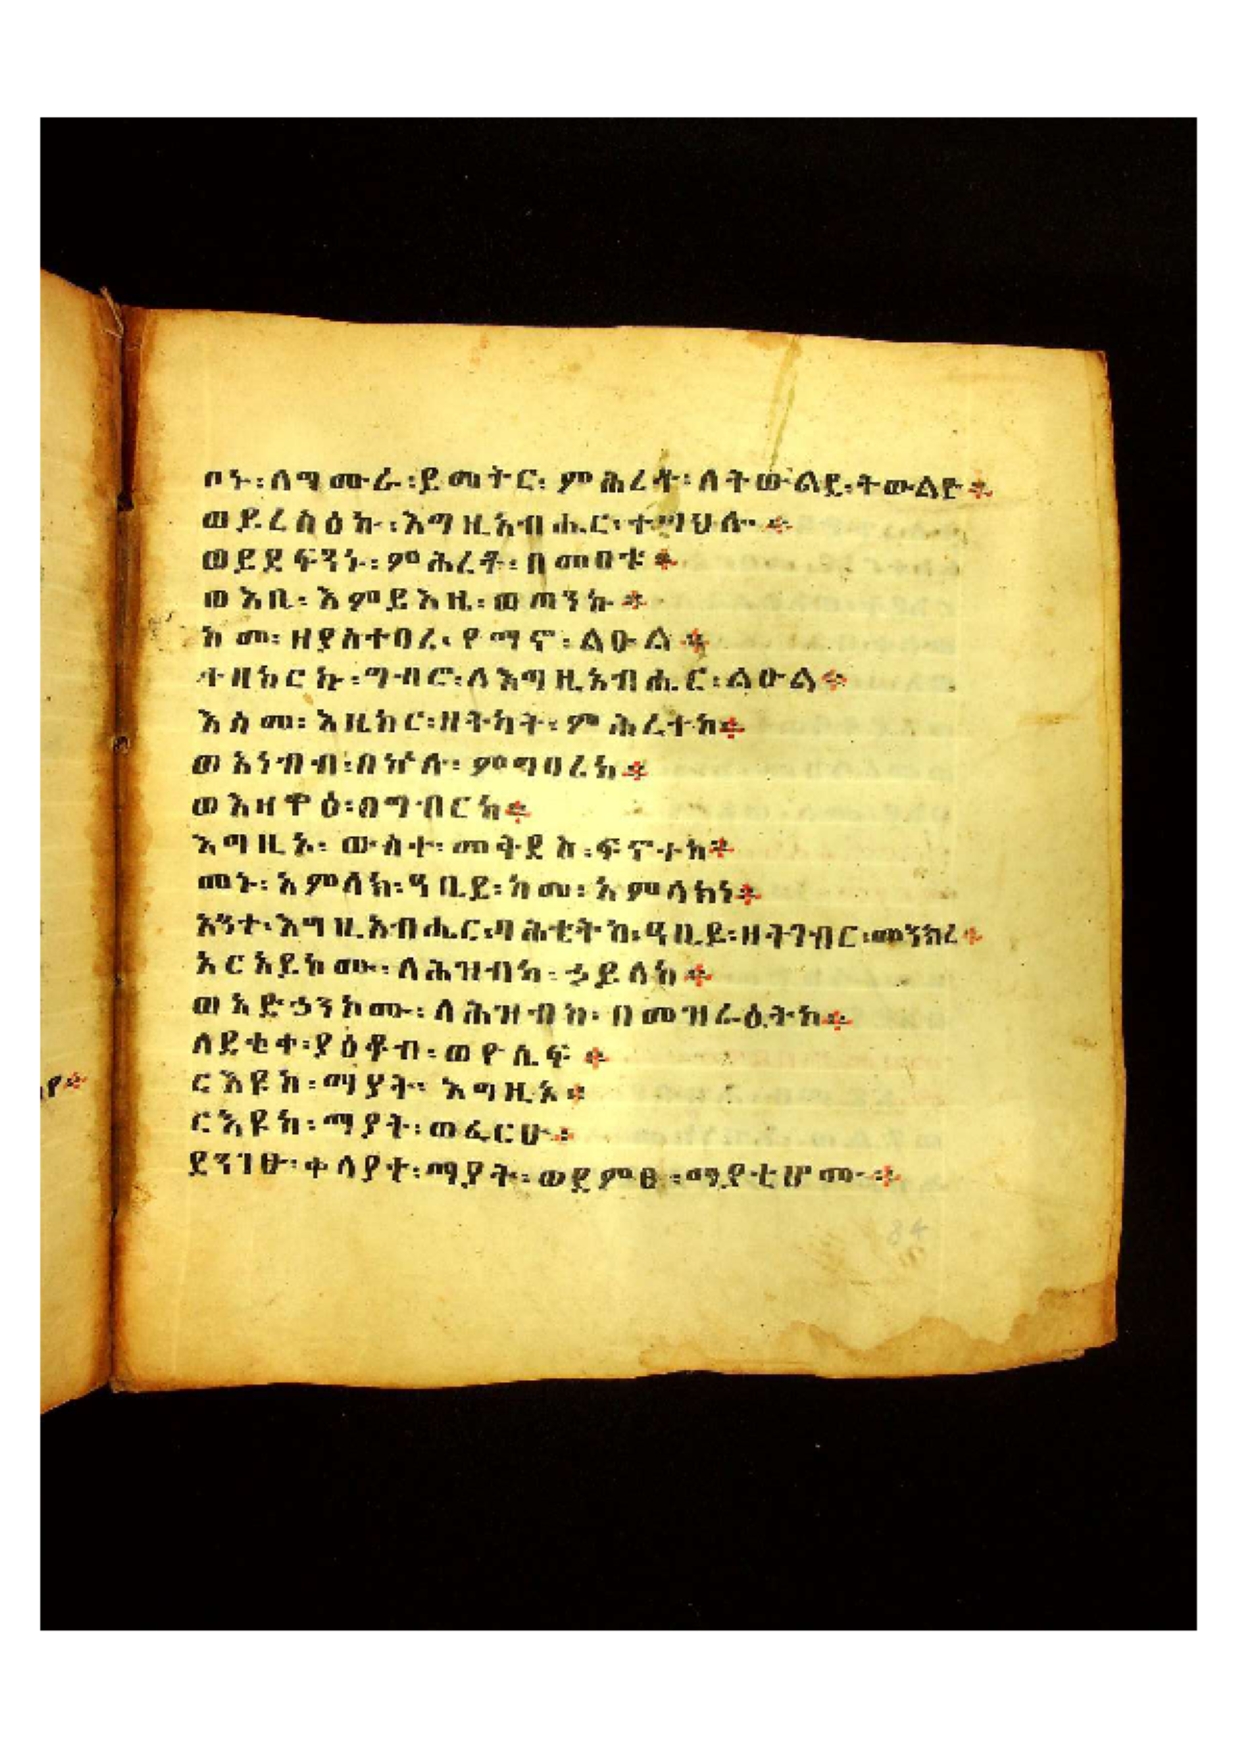 ቦኑ፡ለግሙራ፡ይመትር፡ምሕረቶ፡ለትውልደ፡ትውልድ፨
ወይረስዕኑ፡እግዚአብሔር፡ተሣህሎ፨
ወይደፍንኑ፡ምሕረቶ፡በመዐቱ፨
ወእቤ፡እምይእዜ፡ወጠንኩ፨
ከመ፡ዘያስተባሪ፡የማኖ፡ልዑል፨
ተዘከርኩ፡ግብሮ፡ለእግዚአብሔር፡ልዑል፨
እስመ፡እዜከር፡ዘትካት፡ምሕረተከ፨
ወአነብብ፡በኵሉ፡ምግባሪከ፨
ወእዛዋዕ፡በግብርከ፨
እግዚኦ፡ውስተ፡መቅደስ፡ፍኖትከ፨
መኑ፡አምላክ፡ዓቢይ፡ከመ፡አምላክነ፨
አንተ፡እግዚአብሔር፡ባሕቲትከ፡ዓቢይ፡ዘትገብር፡መንክረ፨
አርአይኮሙ፡ለሕዝብከ፡ኃይለከ፨
ወአድኃንኮሙ፡ለሕዝብከ፡በመዝራዕትከ፨
ለደቂቀ፡ያዕቆብ፡ወዮሴፍ፨
ርእዩከ፡ማያት፡እግዚኦ፨
ርእዩከ፡ማያት፡ወፈርሁ፨
ደንገፁ፡ቀላያተ፡ማያት፡ወደምፀ፡ማያቲሆሙ፨
84